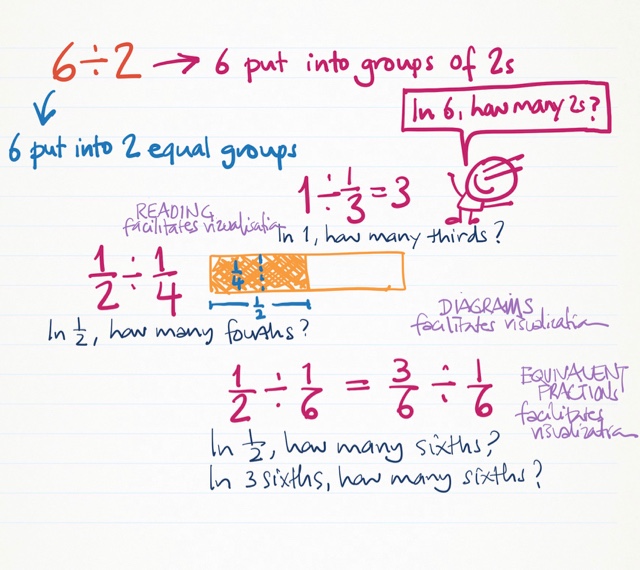 6 ÷ 2 → 6 put into groups of 2s
In 6, how many 2s?
6 put into 2 equal groups
1 ÷ 1/3 = 3
READING
facilitates visualisation
In 1, how many thirds?
1/2 ÷ 1/4
1/4
1/2
In 1/2, how many fourths?
DIAGRAMS
facilitates visualisation
1/2 ÷ 1/6 = 3/6 ÷ 1/6
EQUIVALENT
FRACTIONS
facilitates
visualization
In 1/2, how many sixths?
In 3 sixths, how many sixths?